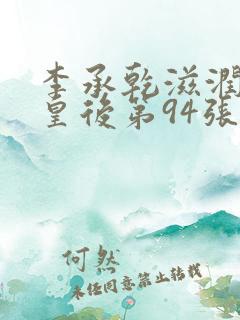 李承乾滋潤
皇後第94張
何然
未经同意禁止转载